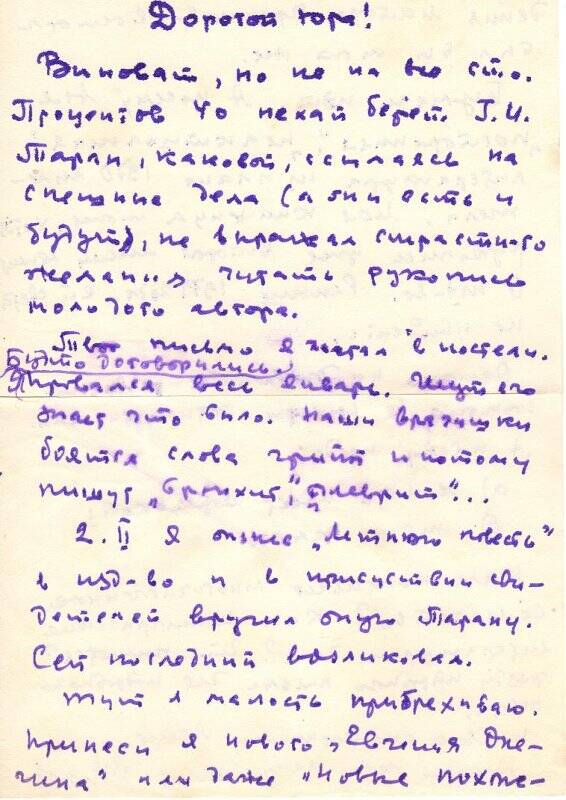 Дорогой Юра!
Виноват, но не на все сто.
Процентов 40 нехай берет Г.И.
Таран, каковой, ссылаясь на
спешные дела (а они есть и
будут), не выражал страстного
желания читать рукопись
молодого автора.
Твое письмо я читал в постели.
Будто договорились.
весь январь. Шут его
знает что было. Наши врачишки
боятся слова грипп и потому
пишут „бронхит", „плеврит"...
2.II я отнес „Летнюю повесть"
в изд-во и в присутствии сви-
детелей вручил оную Тарану.
Сей последний возликовал.
Тут я малость прибрехиваю.
Принеси я нового „Евгения Оне-
гина" или даже „Новые похож-